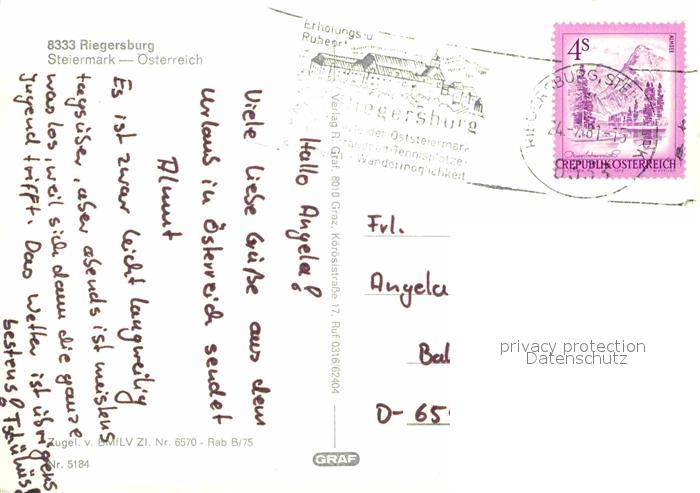 8333 Riegersburg
Steiermark — Österreich
Erholungs u
Ruheort
Riegersburg
in der Oststeiermark
Tennisplätze-
Wandermöglichkeit
4S
ALMSEE
REPUBLIK ÖSTERREICH
RIEGERSBURG, STEIERMARK
8333
Hallo Angela!
Viele liebe Grüße aus dem
Urlaub in Österreich sendet
Almut
Es ist zwar leicht langweilig
tagsüber, aber abends ist meistens
was los, weil sich dann die ganze
Jugend trifft. Das Wetter ist übrigens
bestens! Tschüüs!
Verlag R. Graf, 8010 Graz, Körösistraße 17, Ruf 0316/62404
Frl.
Angela
Bal
D- 65
privacy protection
Datenschutz
Zugel. v. BMfLV Zl. Nr. 6570 - Rab B/75
Nr. 5184
GRAF